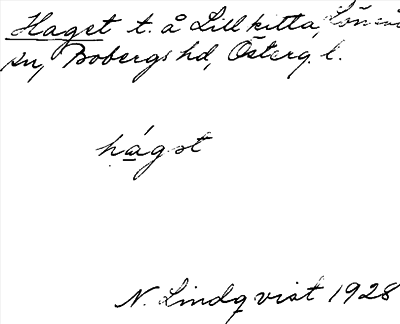 Haget t. å Lillkitta, Lönsås
sn, Bobergs hd, Österg. l.
hágst
N. Lindqvist 1928